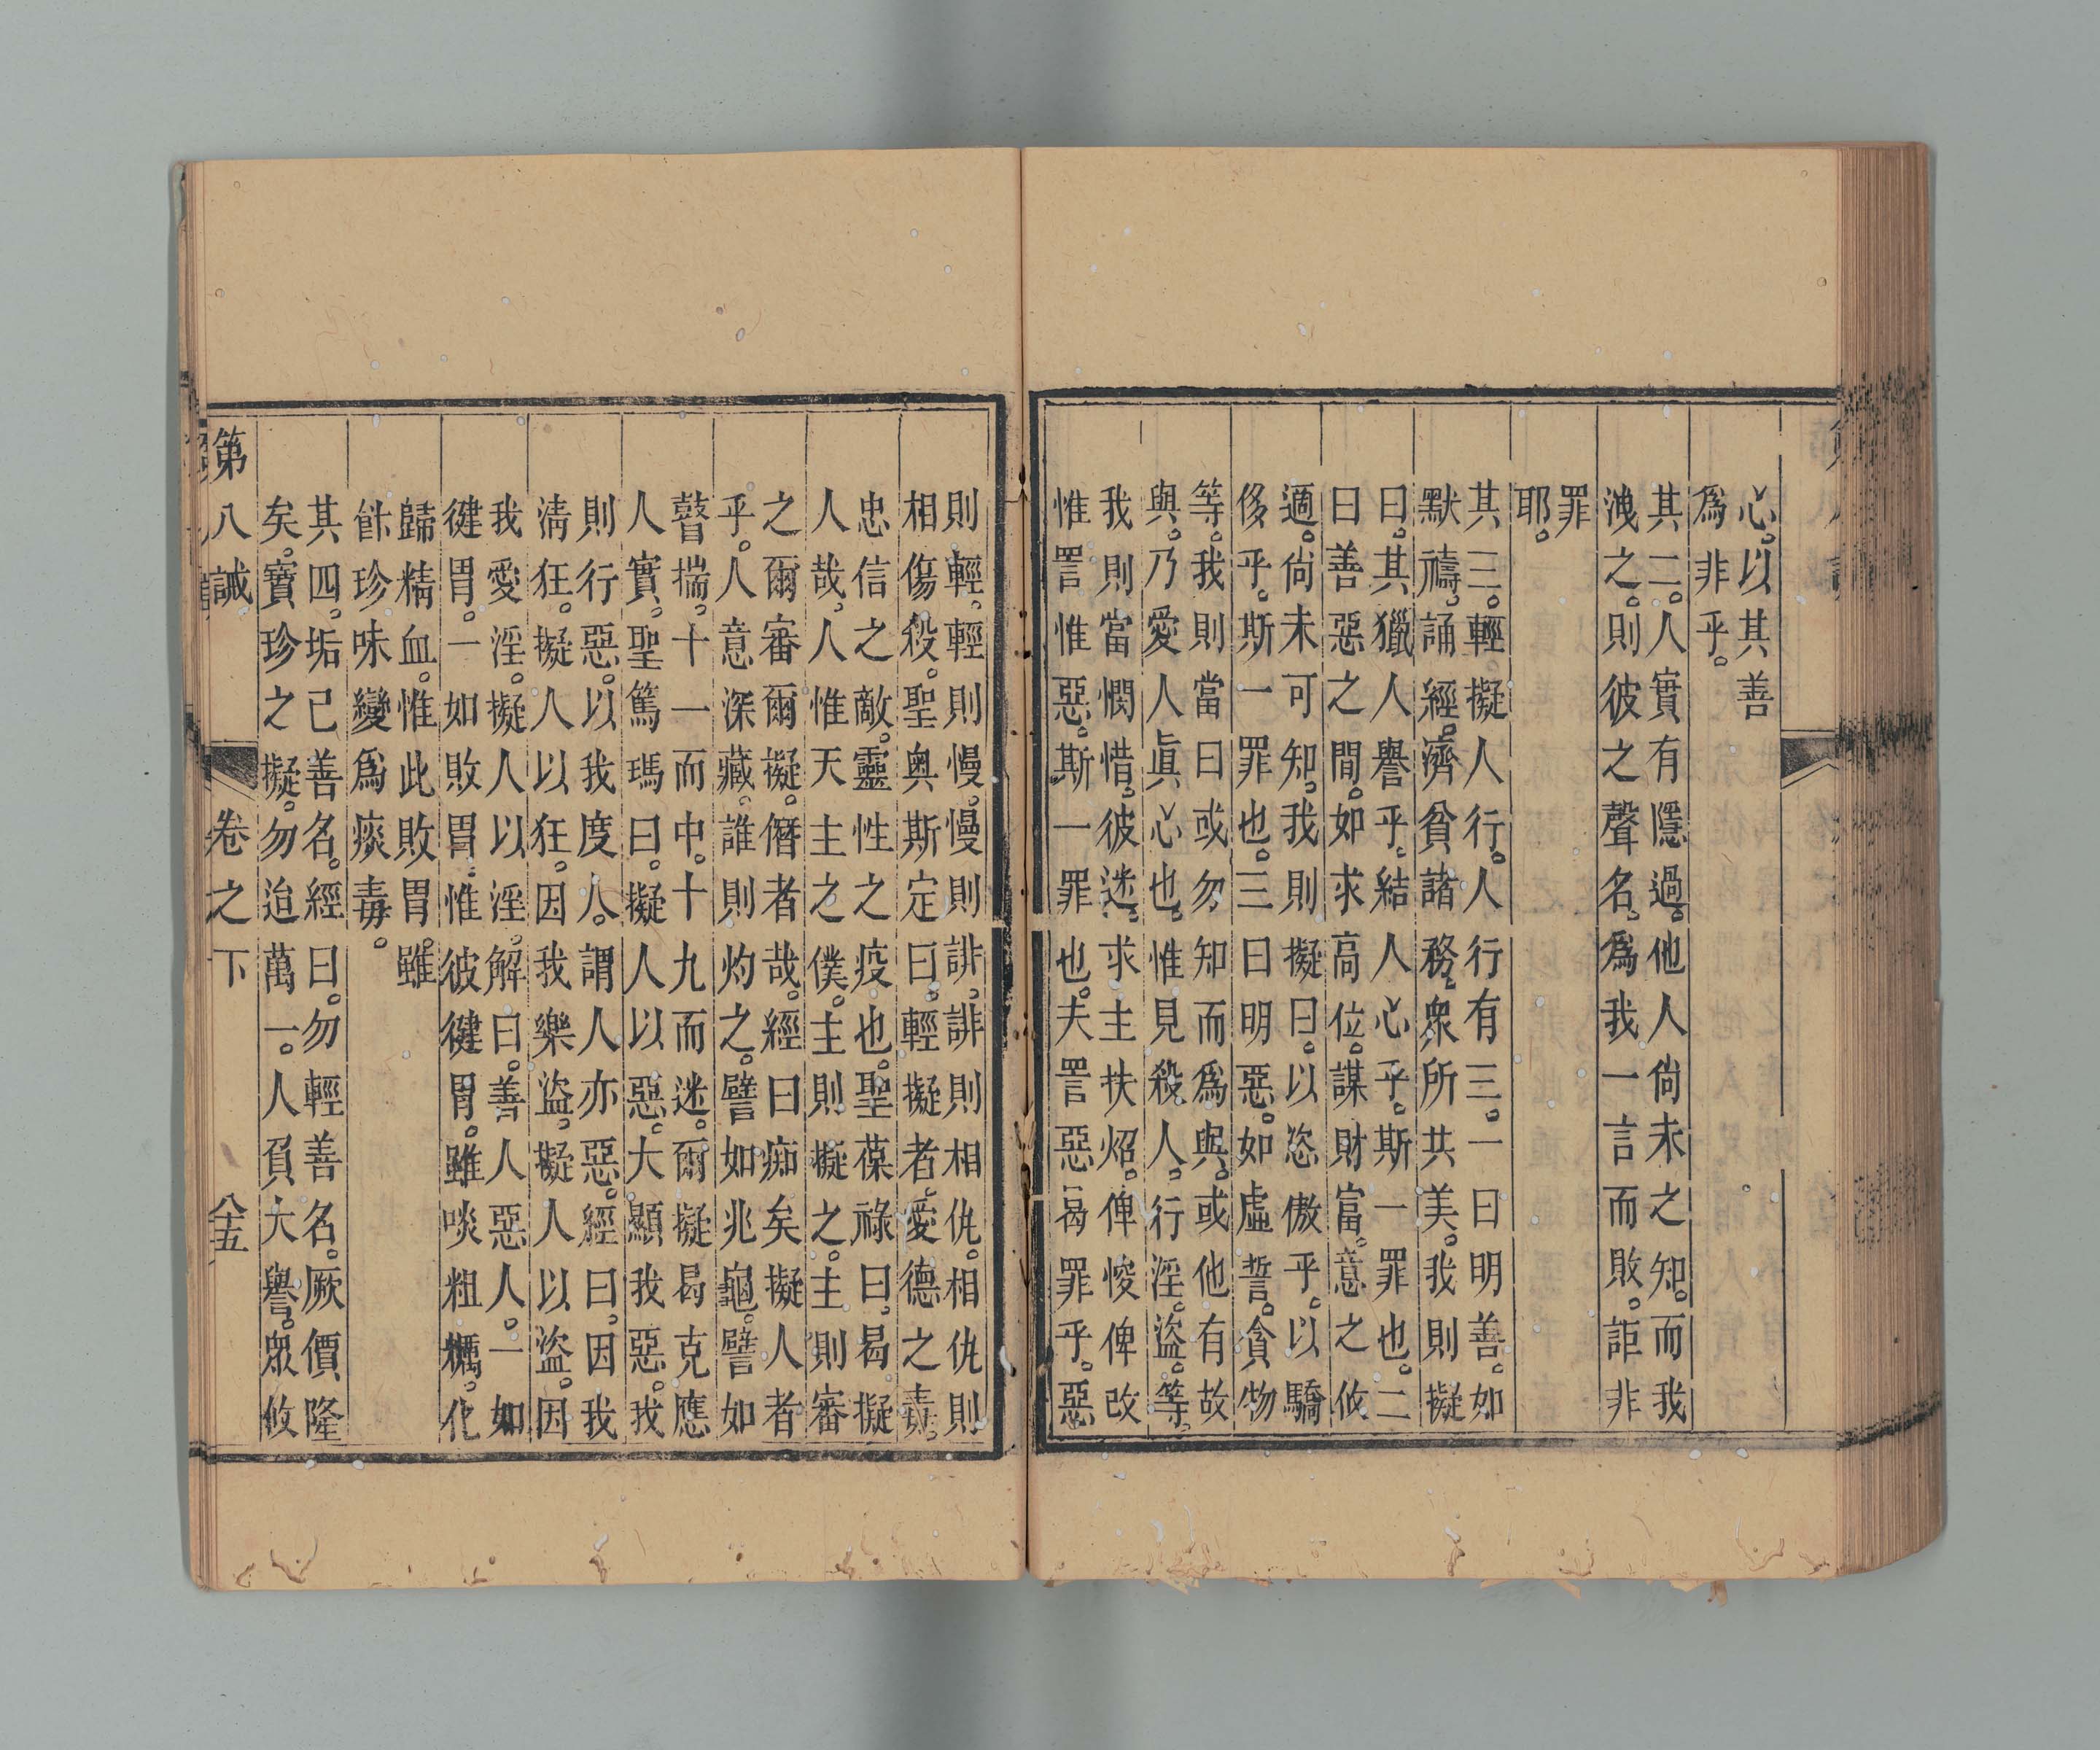 心。以其善
爲非乎。
其二。人實有隱過。他人尙未之知。而我
洩之。則彼之聲名。爲我一言而敗。詎非
罪
耶。
其三。輕擬人行。人行有三。一曰明善。如
默禱。誦經。濟貧諸務。衆所共美。我則擬
曰。其獵人譽乎。結人心乎。斯一罪也。二
曰善惡之間。如求高位。謀財富。意之攸
適。尙未可知。我則擬曰。以恣傲乎。以驕
侈乎。斯一罪也。三曰明惡。如虛誓。貪物
等。我則當曰或勿知而爲與。或他有故
與。乃愛人眞心也。惟見殺人。行淫。盜。等。
我則當憫惜。彼迷。求主扶炤。俾悛俾改
惟詈惟惡。斯一罪也。夫詈惡曷罪乎。惡
則輕。輕則慢。慢則誹。誹則相仇。相仇則
相傷殺。聖奥斯定曰。輕擬者。愛德之毒。
忠信之敵。靈性之疫也。聖葆祿曰。曷擬
人哉。人惟天主之僕。主則擬之。主則審
之爾審爾擬。僭者哉。經曰痴矣擬人者
乎。人意深藏。誰則灼之。譬如兆龜。譬如
瞽揣。十一而中。十九而迷。爾擬曷克應
人實。聖篤瑪曰。擬人以惡。大顯我惡。我
則行惡。以我度人。謂人亦惡。經曰。因我
淸狂。擬人以狂。因我樂盜。擬人以盜。因
我愛淫。擬人以淫。解曰。善人惡人。一如
健胃。一如敗胃。惟彼健胃。雖啖粗糲。化
歸精血。惟此敗胃。雖
餙珍味變爲痰毒。
其四。垢己善名。經曰。勿輕善名。厥價隆
矣。寶珍之擬。勿迨萬一。人負大譽。眾攸
第八誡 卷之下 八十五